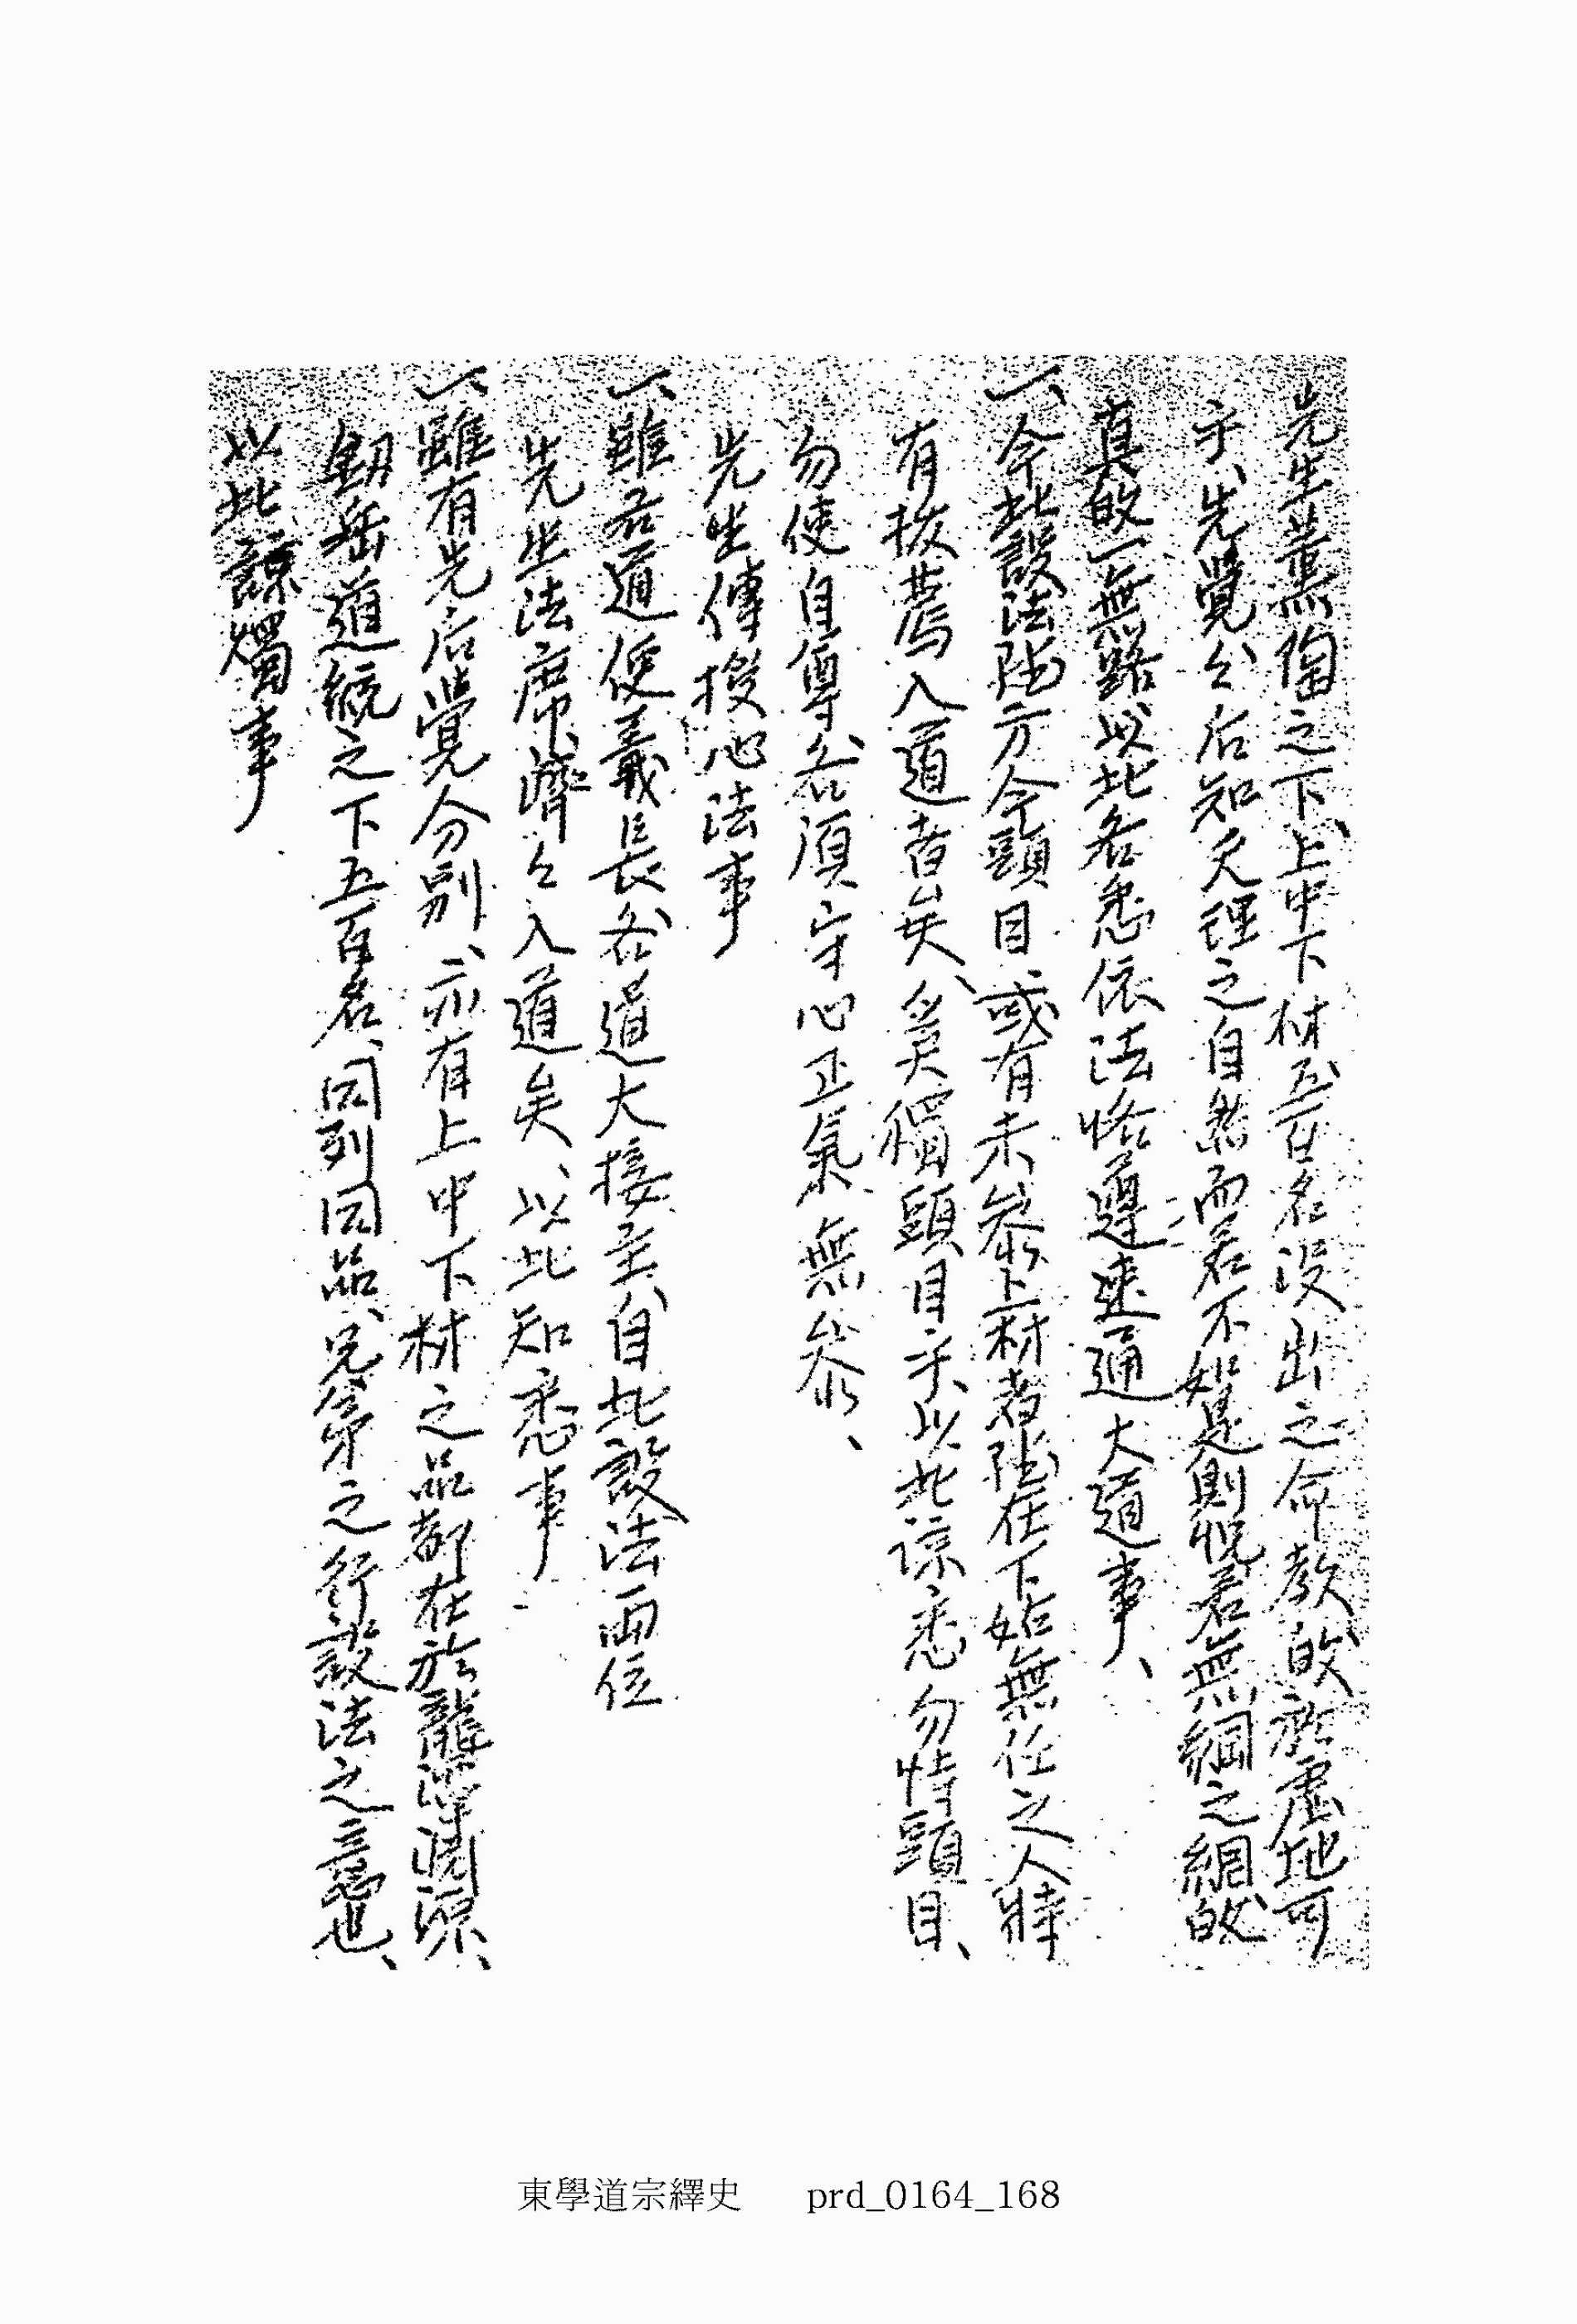 先生薰陶之下、上中下材五百名沒出之命教的於虛地可
乎、先覺公后知天理之自然而若不如是則怳若無綱之網的
真的一無路以此各悉依法恪遵速通大道事、
一、今此設法陞方今頭目、或有未參上材者陞在下始無任之人將
有拔薦入道者矣、奚獨頭目乎、以此諒悉勿恃頭目、
勿使自尊、各須守心正氣、無參、
先生傳授心法事
一、雖各道便義長各道大接主、自此設法兩位
先生法席、濟々入道矣、以此知悉事
一、雖有先后覺分別、亦有上中下材之品都在於龍潭淵源、
劒岳道統之下五百名、同列同品、兄弟之行設法之意也、
以此諒燭事
東學道宗繹史 prd_0164_168